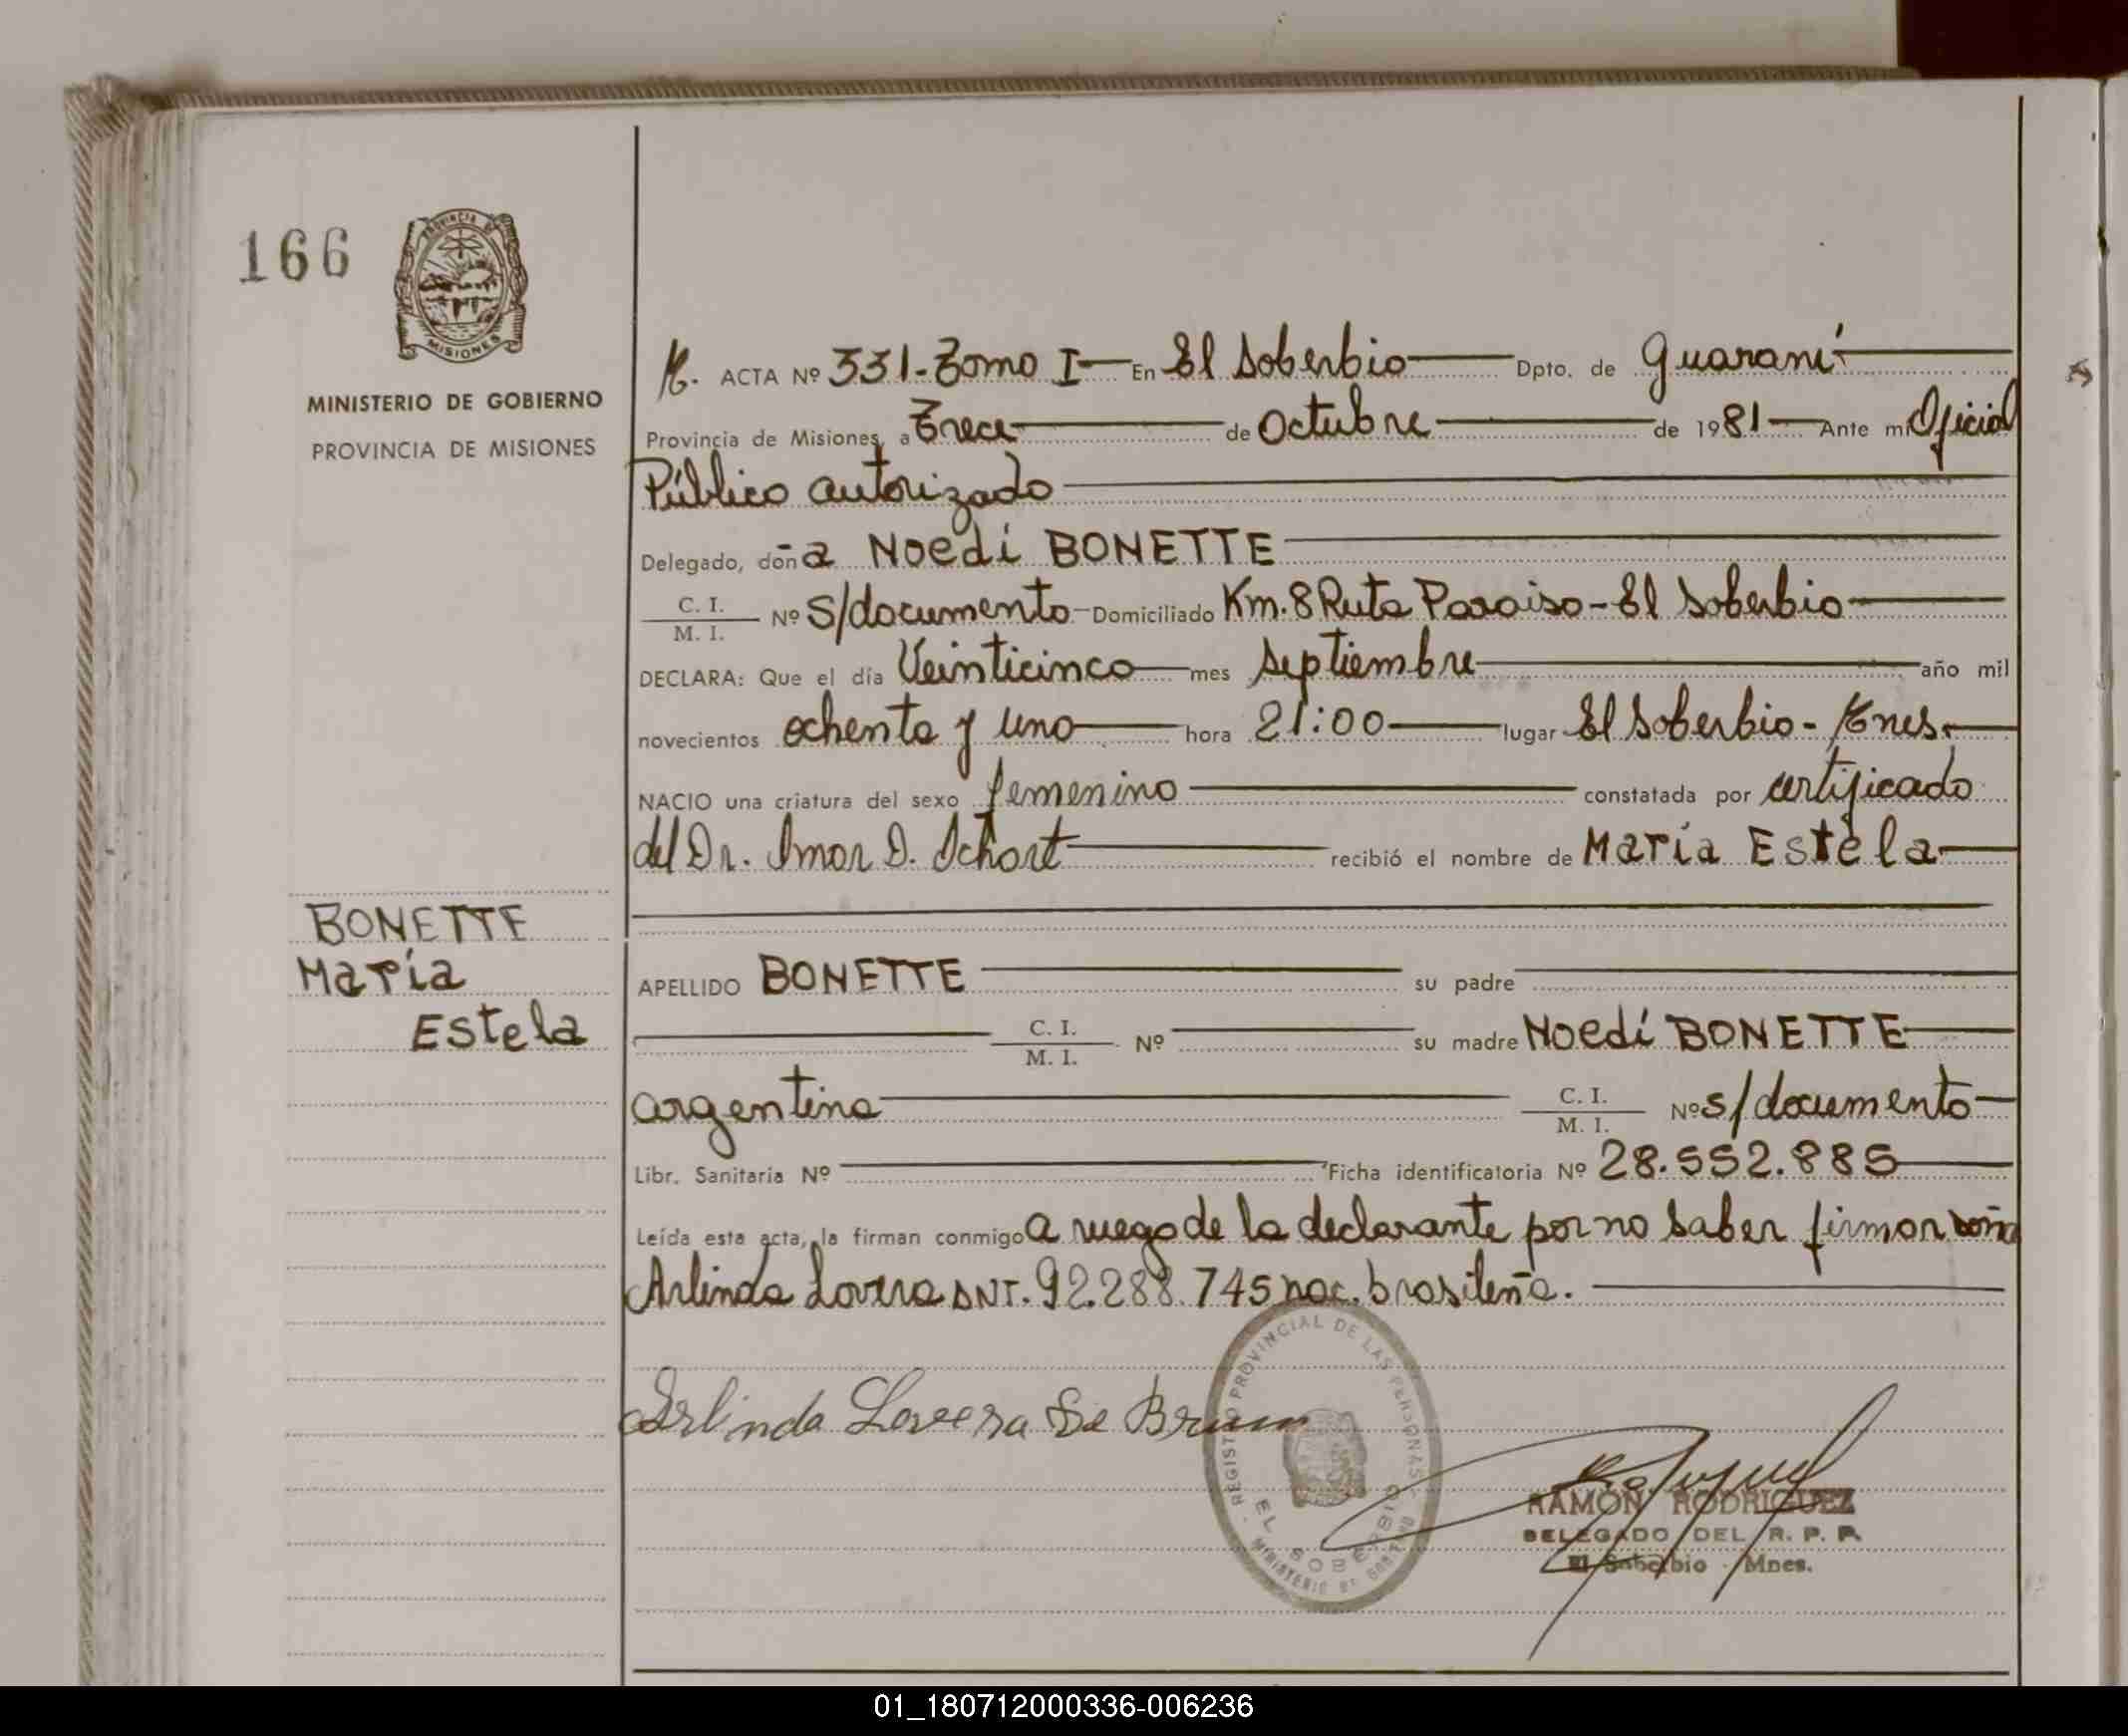 166
PROVINCIA DE
MISIONES
MINISTERIO DE GOBIERNO
PROVINCIA DE MISIONES
ACTA Nº 331-Tomo I En El Soberbio Dpto. de Guaraní
Provincia de Misiones, a Trece de Octubre de 1981 Ante mi Oficial
Público autorizado
Delegado, doña Noedí BONETTE
C. I.
M. I. Nº S/documento Domiciliado Km. 8 Ruta Paraiso-El Soberbio
DECLARA: Que el día Veinticinco mes Septiembre año mil
novecientos ochenta y uno hora 21:00 lugar El Soberbio-Mnes.
NACIO una criatura del sexo femenino constatada por certificado
del Dr. Imar D. Schort recibió el nombre de María Estela
BONETTE
María
Estela
APELLIDO BONETTE su padre
C. I.
M. I. Nº su madre Noedí BONETTE
argentina C. I.
M. I. Nº s/documento
Libr. Sanitaria Nº Ficha identificatoria Nº 28.552.885
Leída esta acta, la firman conmigo a ruego de la declarante por no saber firmar doña
Arlinda Lovera DNI. 92.288.745 nac. brasileña.
Arlinda Lovera De Brum
REGISTRO PROVINCIAL DE LAS PERSONAS
EL SOBERBIO
MINISTERIO DE GOBIERNO
RAMÓN RODRIGUEZ
DELEGADO DEL R. P. P.
El Soberbio - Mnes.
01_180712000336-006236